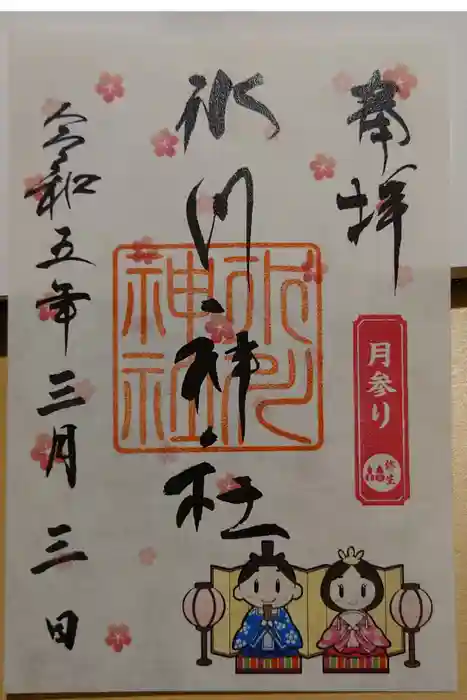 奉拝
月参り
弥生
氷川神社
氷川神社
令和五年三月三日